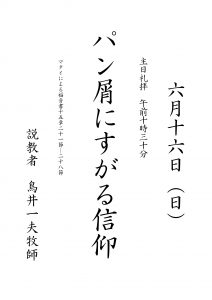 六月十六日（日）
主日礼拝　午前十時三十分
パン屑にすがる信仰
マタイによる福音書十五章二十一節―二十八節
説教者　鳥井一夫牧師